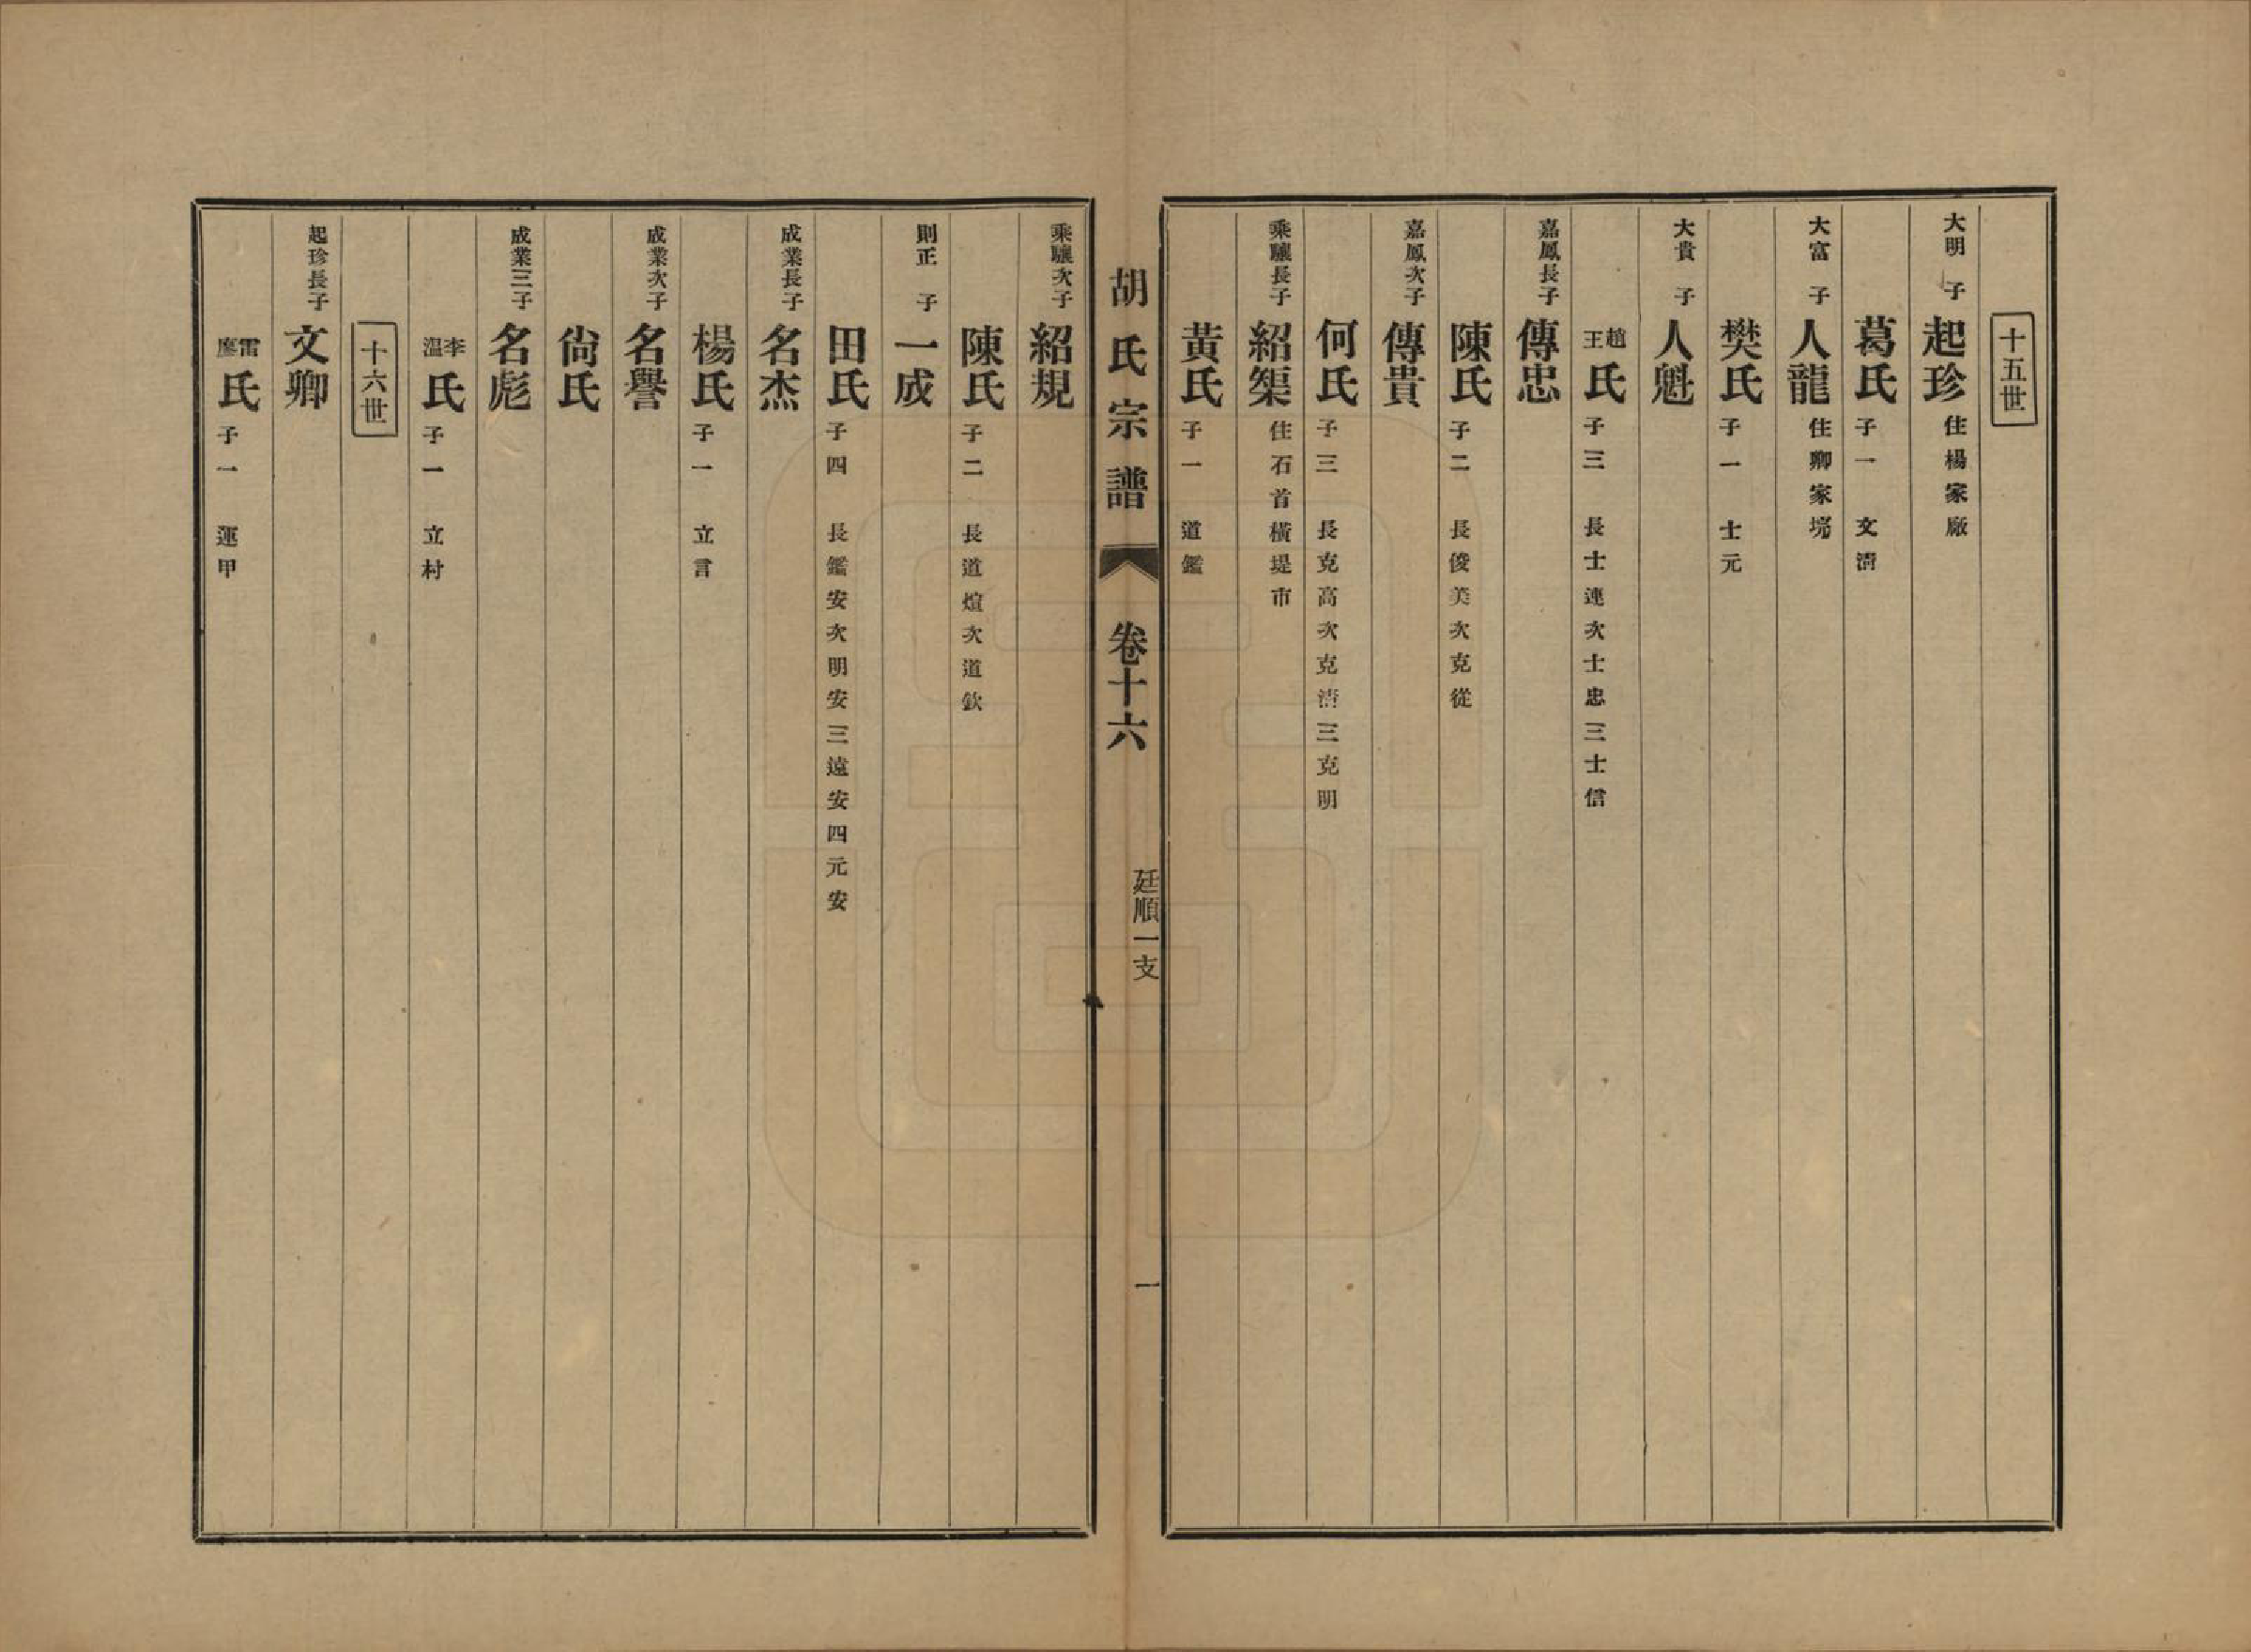 十五世
大明子 起珍 住楊家廠
葛氏 子一 文清
大富子 人龍 住卿家塆
樊氏 子一 士元
大貴子 人魁
趙王氏 子三 長士連次士忠三士信
嘉鳳長子 傳忠
陳氏 子二 長俊美次克從
嘉鳳次子 傳貴
何氏 子三 長克高次克清三克明
乘驤長子 紹榘 住石首橫堤市
黃氏 子一 道鑑
胡氏宗譜 卷十六 廷順一支 一
乘驤次子 紹規
陳氏 子二 長道煊次道欽
則正子 一成
田氏 子四 長鑑安次明安三遠安四元安
成業長子 名杰
楊氏 子一 立言
成業次子 名譽
尙氏
成業三子 名彪
李溫氏 子一 立村
十六世
起珍長子 文卿
雷廖氏 子一 運甲